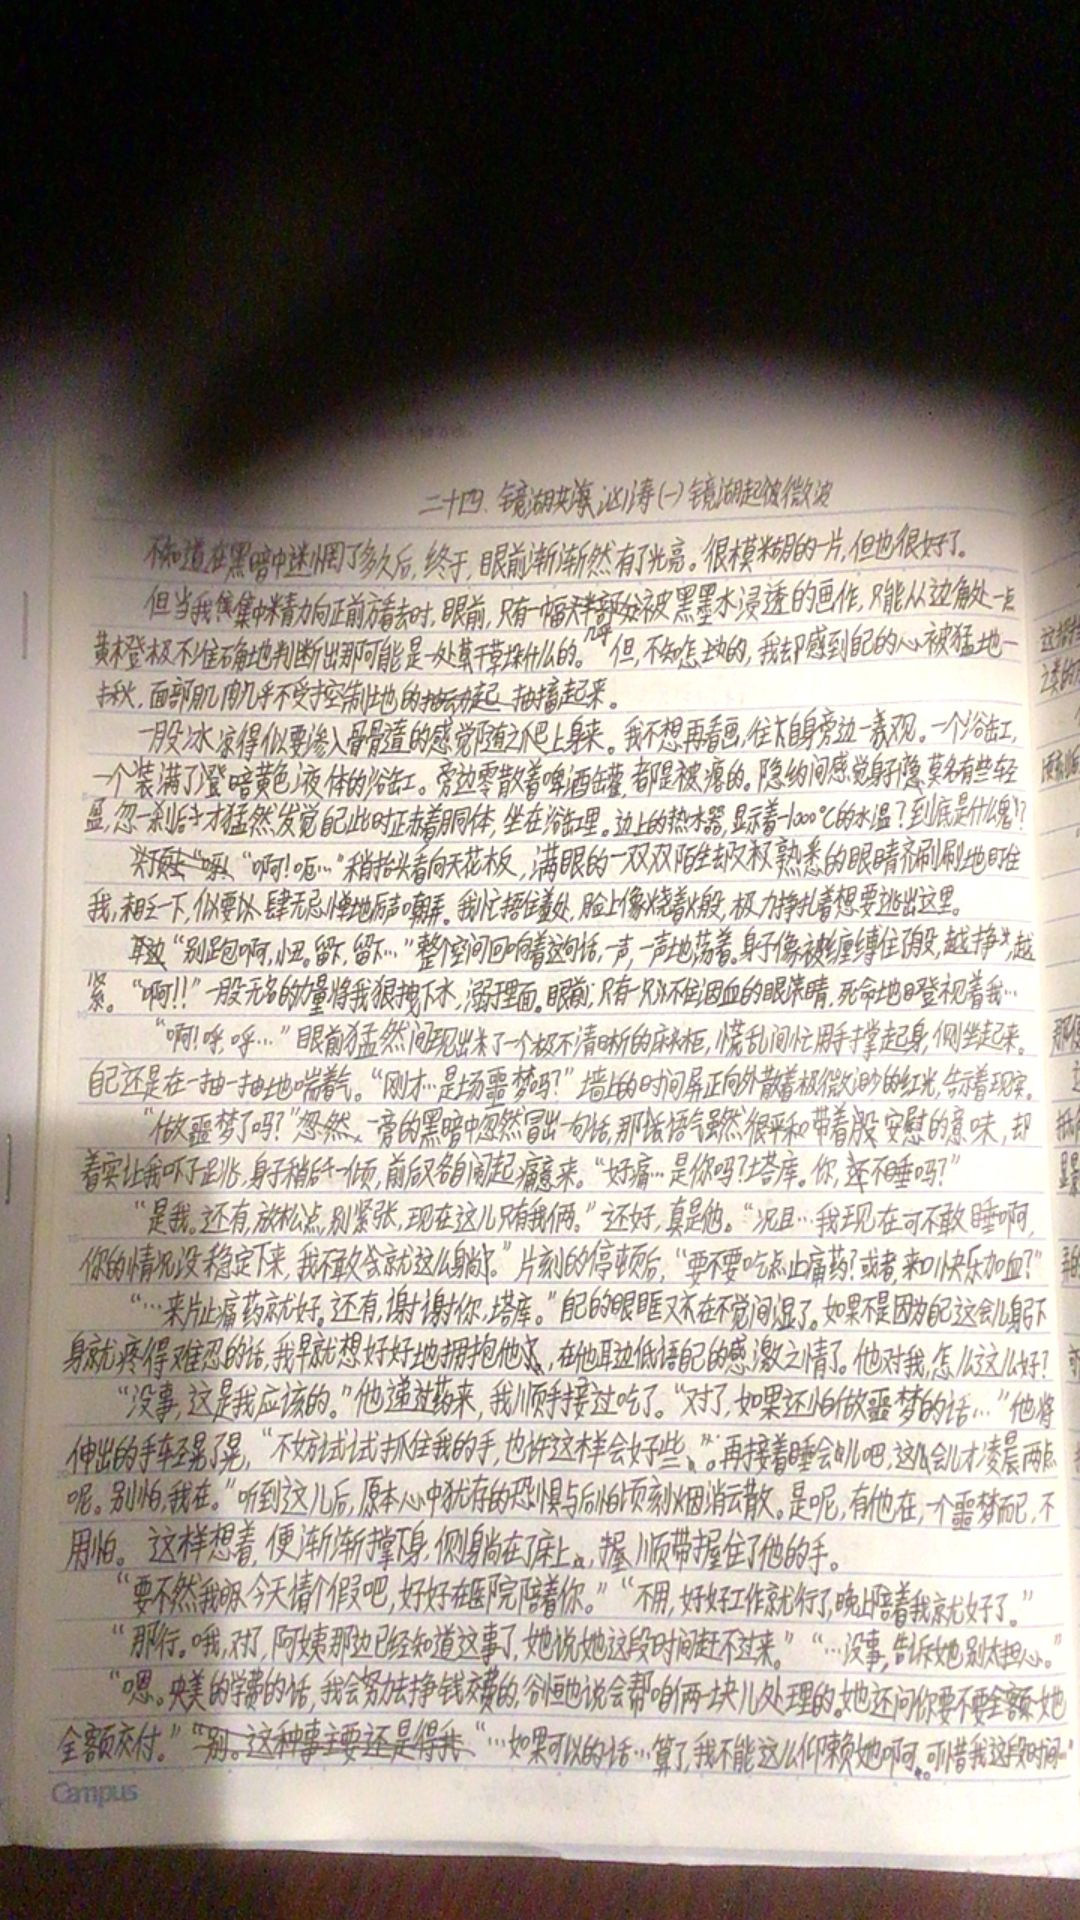 二十四. 镜湖 汹涛(一) 镜湖起微波
不知道在黑暗中迷惘了多久后,终于,眼前渐渐然有了光亮。很模糊的一片,但也很好了。
但当我集中精力向正前方看去时,眼前,只有一幅大半部分被黑墨水浸透的画作,只能从边角处一点
黄橙极不准确地判断出那可能是一处草干草垛什么的。但,不知怎么的,我却感到自己的心被猛地一
揪,面部肌肉几乎不受控制地的抽动起 抽搐起来。
一股冰凉得似要渗入骨髓的感觉随之爬上身来。我不想再看画,往自身旁边一观。一个浴缸,
一个装满了暗黄色液体的浴缸。旁边零散着啤酒缶罐,都是被 的。隐约间感觉身子莫名有些轻
盈,忽一刹后才猛然发觉自己此时正赤着胴体,坐在浴缸里。边上的热水器,显示着-1000℃的水温?到底是什么鬼!?
头顶上“啊!呃…”稍抬头看向天花板,满眼的一双双陌生却又极熟悉的眼睛齐刷刷地盯住
我,眨一下,似要以肆无忌惮地厉声嘲弄。我忙捂住羞处,脸上像烧着火般,极力挣扎着想要逃出这里。
耳边“别跑啊,小丑。留下,留下…”整个空间回响着这句话,一声,一声地荡着。身子像被缠缚住了般,越挣,越
紧。“啊!!”一股无名的力量将我狠拽下水,溺于里面。眼前,只有一只 不住洇血的眼睛,死命地瞪视着我…
“啊!呼,呼…”眼前猛然间现出来了一个极不清晰的床头柜,慌乱间忙用手撑起身,侧坐起来。
自己还是在一抽一抽地喘着气。“刚才…是场噩梦吗?”墙上的时间屏正向外散着极微渺的红光,告示着现实。
“做噩梦了吗?”忽然,一旁的黑暗中忽然冒出一句话,那语气虽然很平和,带着股安慰的意味,却
着实让我吓了一跳,身子稍后一倾,前后又各自闹起痛意来。“好痛…是你吗?塔库。你,还不睡吗?”
“是我。还有,放松点,别紧张,现在这儿只有我俩。”还好,真是他。“况且…我现在可不敢睡啊,
你的情况没稳定下来,我不敢就这么躺。”片刻的停顿后,“要不要吃点止痛药?或者,来口快乐加血?”
“…来片止痛药就好。还有,谢谢你,塔库。”自己的眼眶又不在不觉间湿了。如果不是因为自己这会儿身下
身就疼得难忍的话,我早就想好好地拥抱他,在他耳边低语自己的感激之情了。他对我,怎么这么好?
“没事,这是我应该的。”他递过药来,我顺手接过吃了。“对了,如果还怕做噩梦的话…”他将
伸出的手轻晃了晃,“不妨试试抓住我的手,也许这样会好些。再接着睡会儿吧,这会儿才凌晨两点
呢。别怕,我在。”听到这儿后,原本心中犹存的恐惧与后怕顷刻烟消云散。是呢,有他在,一个噩梦而已,不
用怕。这样想着,便渐渐撑下身,侧身躺在了床上,握 顺带握住了他的手。
“要不然我明 今天请个假吧,好好在医院陪着你。”“不用,好好工作就行了,晚上陪着我就尤好了。”
“那行。哦,对了,阿姨那边已经知道这事了,她说她这段时间赶不过来。”“…没事,告诉她别太担心。”
“嗯。央美的学费的话,我会努力去挣钱交费的,谷恒他说会帮咱俩一块儿处理的。她还问你要不要全额 她
全额交付。”“别。这种事主要还是得我“…如果可以的话…算了,我不能这么仰赖她啊。可惜我这段时间…”
Campus